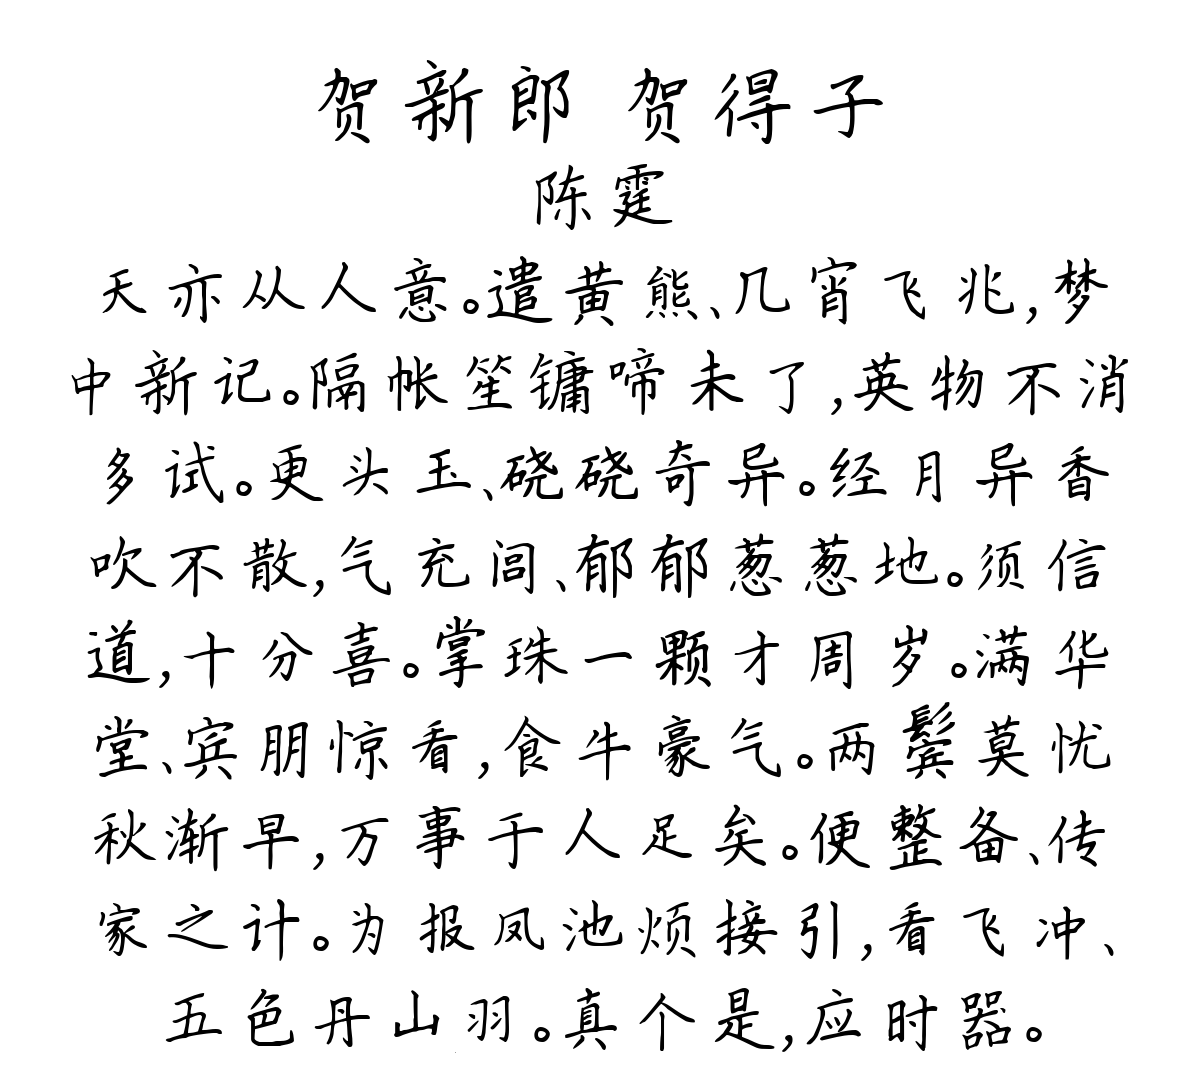 贺新郎 贺得子
陈霆
天亦从人意。遣黄熊、几宵飞兆,梦
中新记。隔帐笙镛啼未了,英物不消
多试。更头玉、硗硗奇异。经月异香
吹不散,气充闾、郁郁葱葱地。须信
道,十分喜。掌珠一颗才周岁。满华
堂、宾朋惊看,食牛豪气。两鬓莫忧
秋渐早,万事于人足矣。便整备、传
家之计。为报凤池烦接引,看飞冲、
五色丹山羽。真个是,应时器。